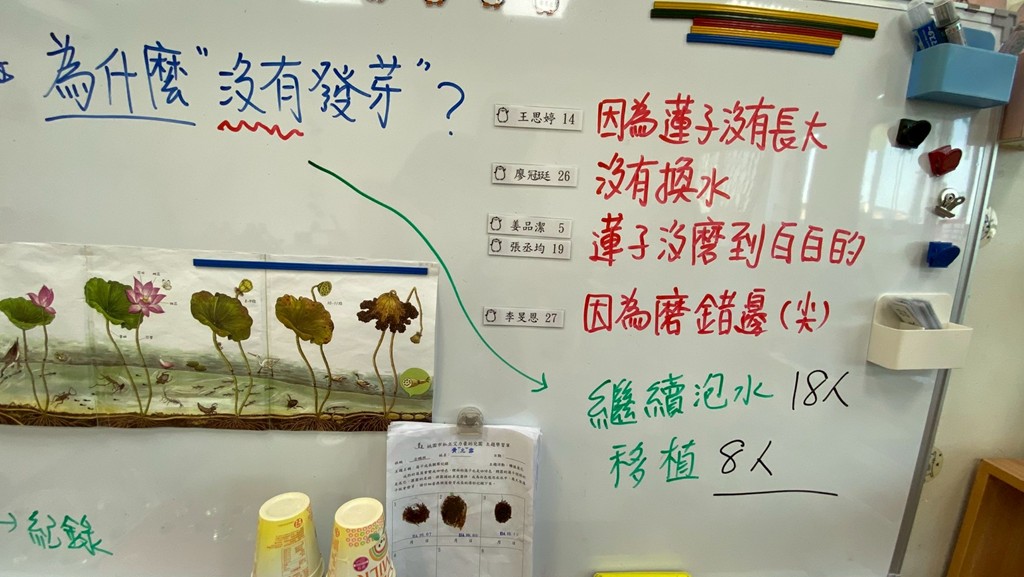 為什麼"沒有發芽"?
王思婷 14
因為蓮子沒有長大
廖冠珽 26
沒有換水
姜品潔 5
張丞均 19
蓮子沒磨到白白的
李旻恩 27
因為磨錯邊(尖)
繼續泡水 18人
移植 8人
→紀錄